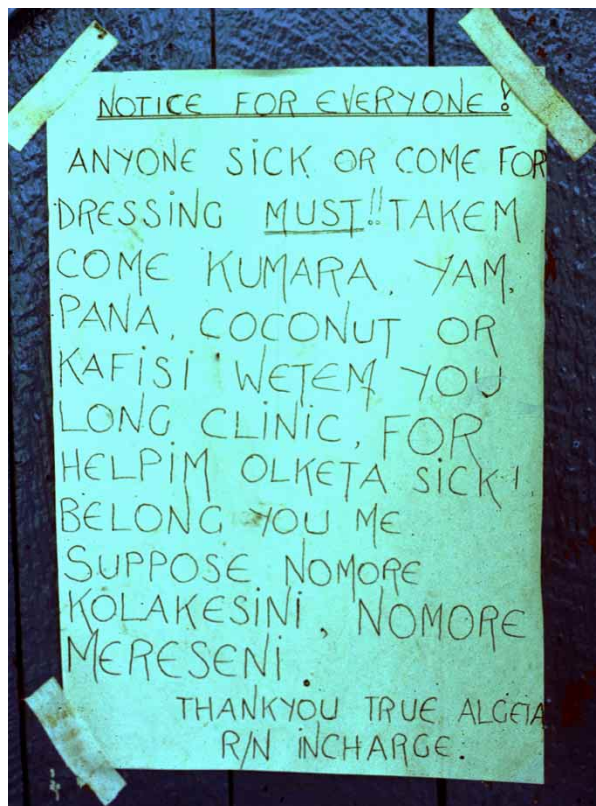 NOTICE FOR EVERYONE!
ANYONE SICK OR COME FOR
DRESSING MUST!! TAKEM
COME KUMARA, YAM,
PANA, COCONUT OR
KAFISI WETEM YOU
LONG CLINIC, FOR
HELPIM OLKETA SICK!
BELONG YOU ME
SUPPOSE NOMORE
KOLAKESINI, NOMORE
MERESENI.
THANKYOU TRUE ALGETA
R/N INCHARGE.